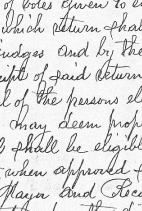 of votes given to e
which return shal
judges and by the
eipt of said return
l of the persons el
may deem prop
shall be eligible
when approved
Mayor and Reco